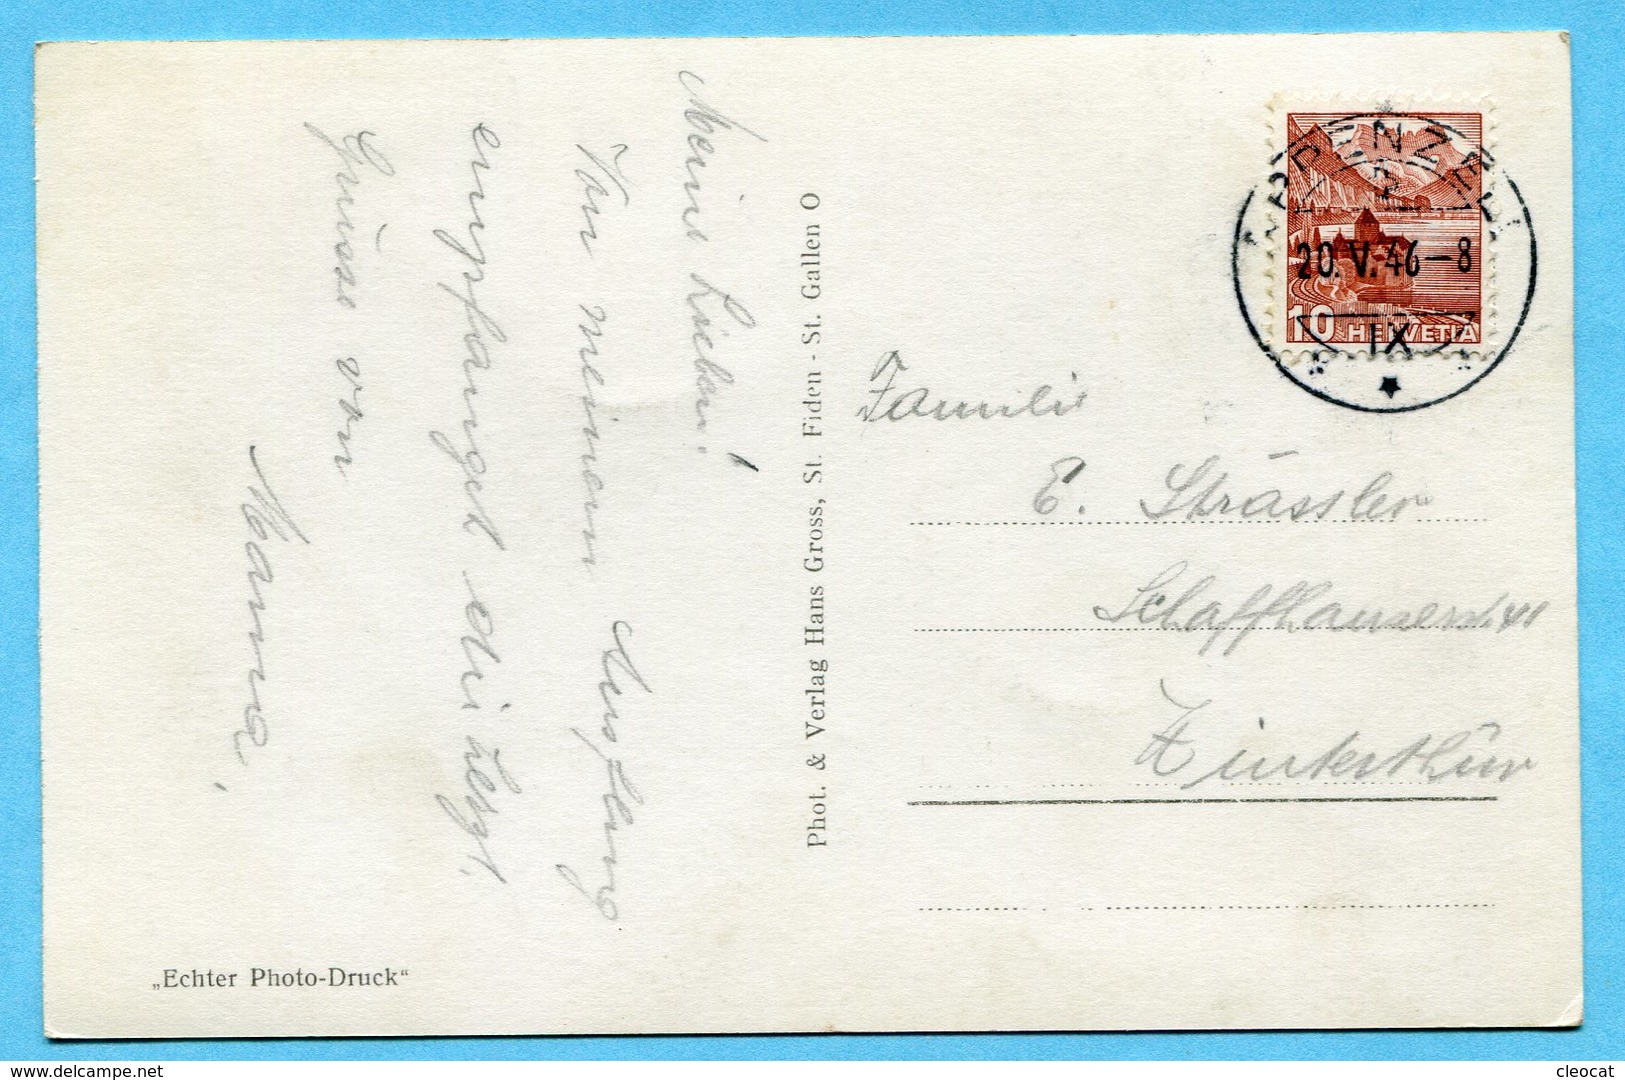 Meine Lieben!
Von meinem Ausflung
empfanget die
Grüsse von
Mamma,
Phot. & Verlag Hans Gross, St. Fiden - St. Gallen O
„Echter Photo-Druck“
APPENZELL
20. V. 46-8
IX
10 HELVETIA
Familie
E. Strässler
Schaffhauserstr
Winterthur
www.delcampe.net
cleocat